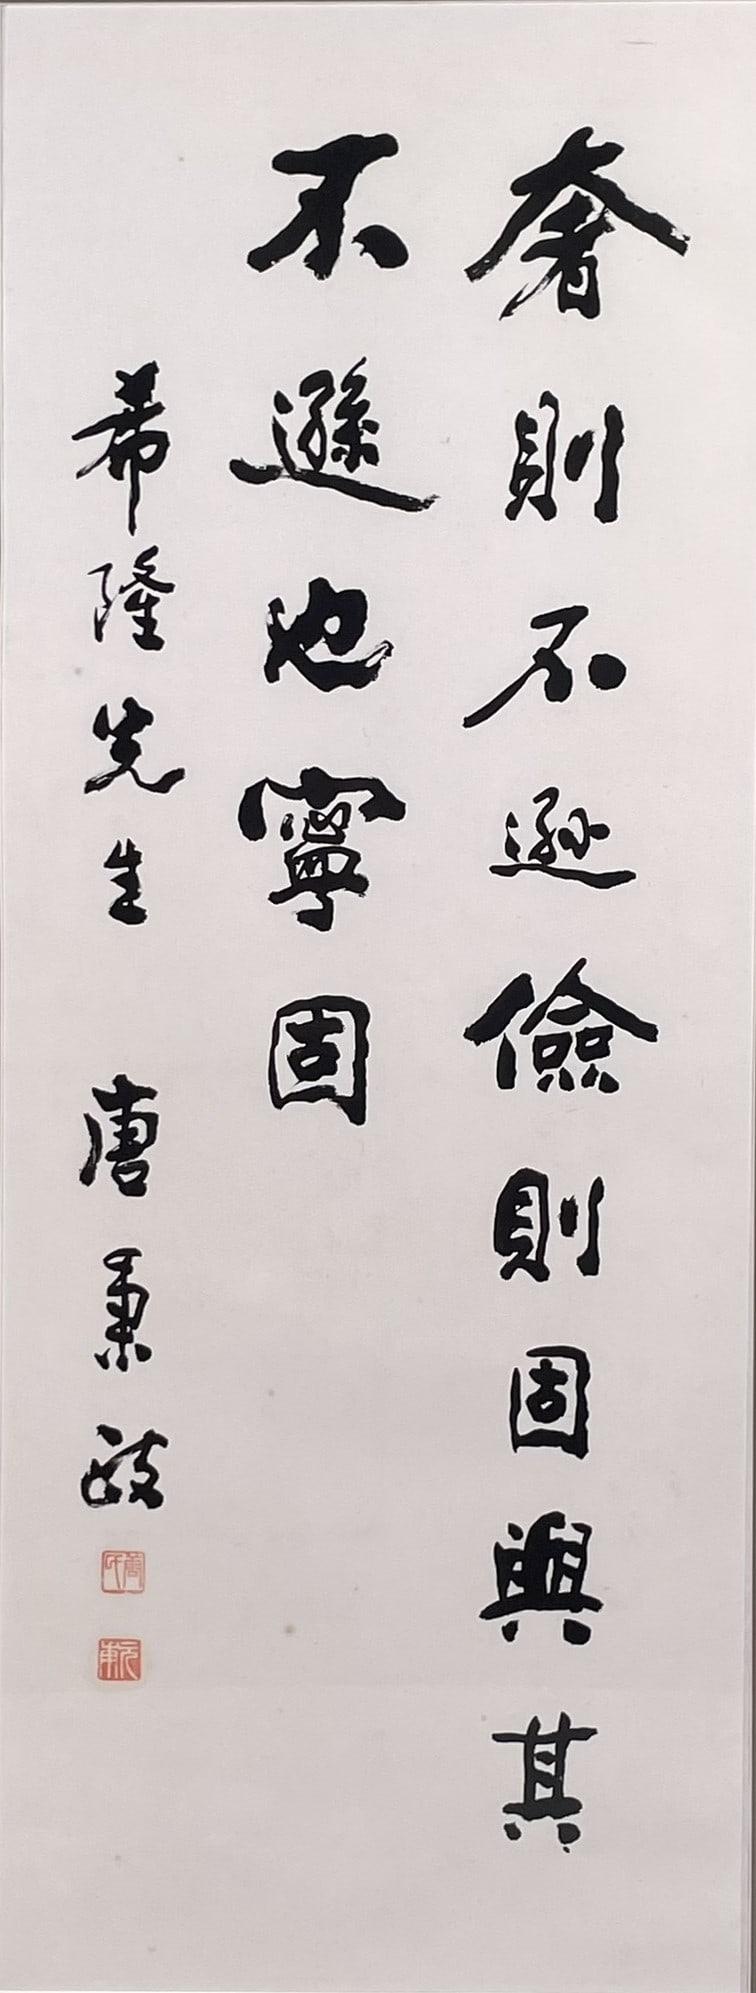 奢則不遜儉則固與其
不遜也寧固
希隆先生 唐秉政